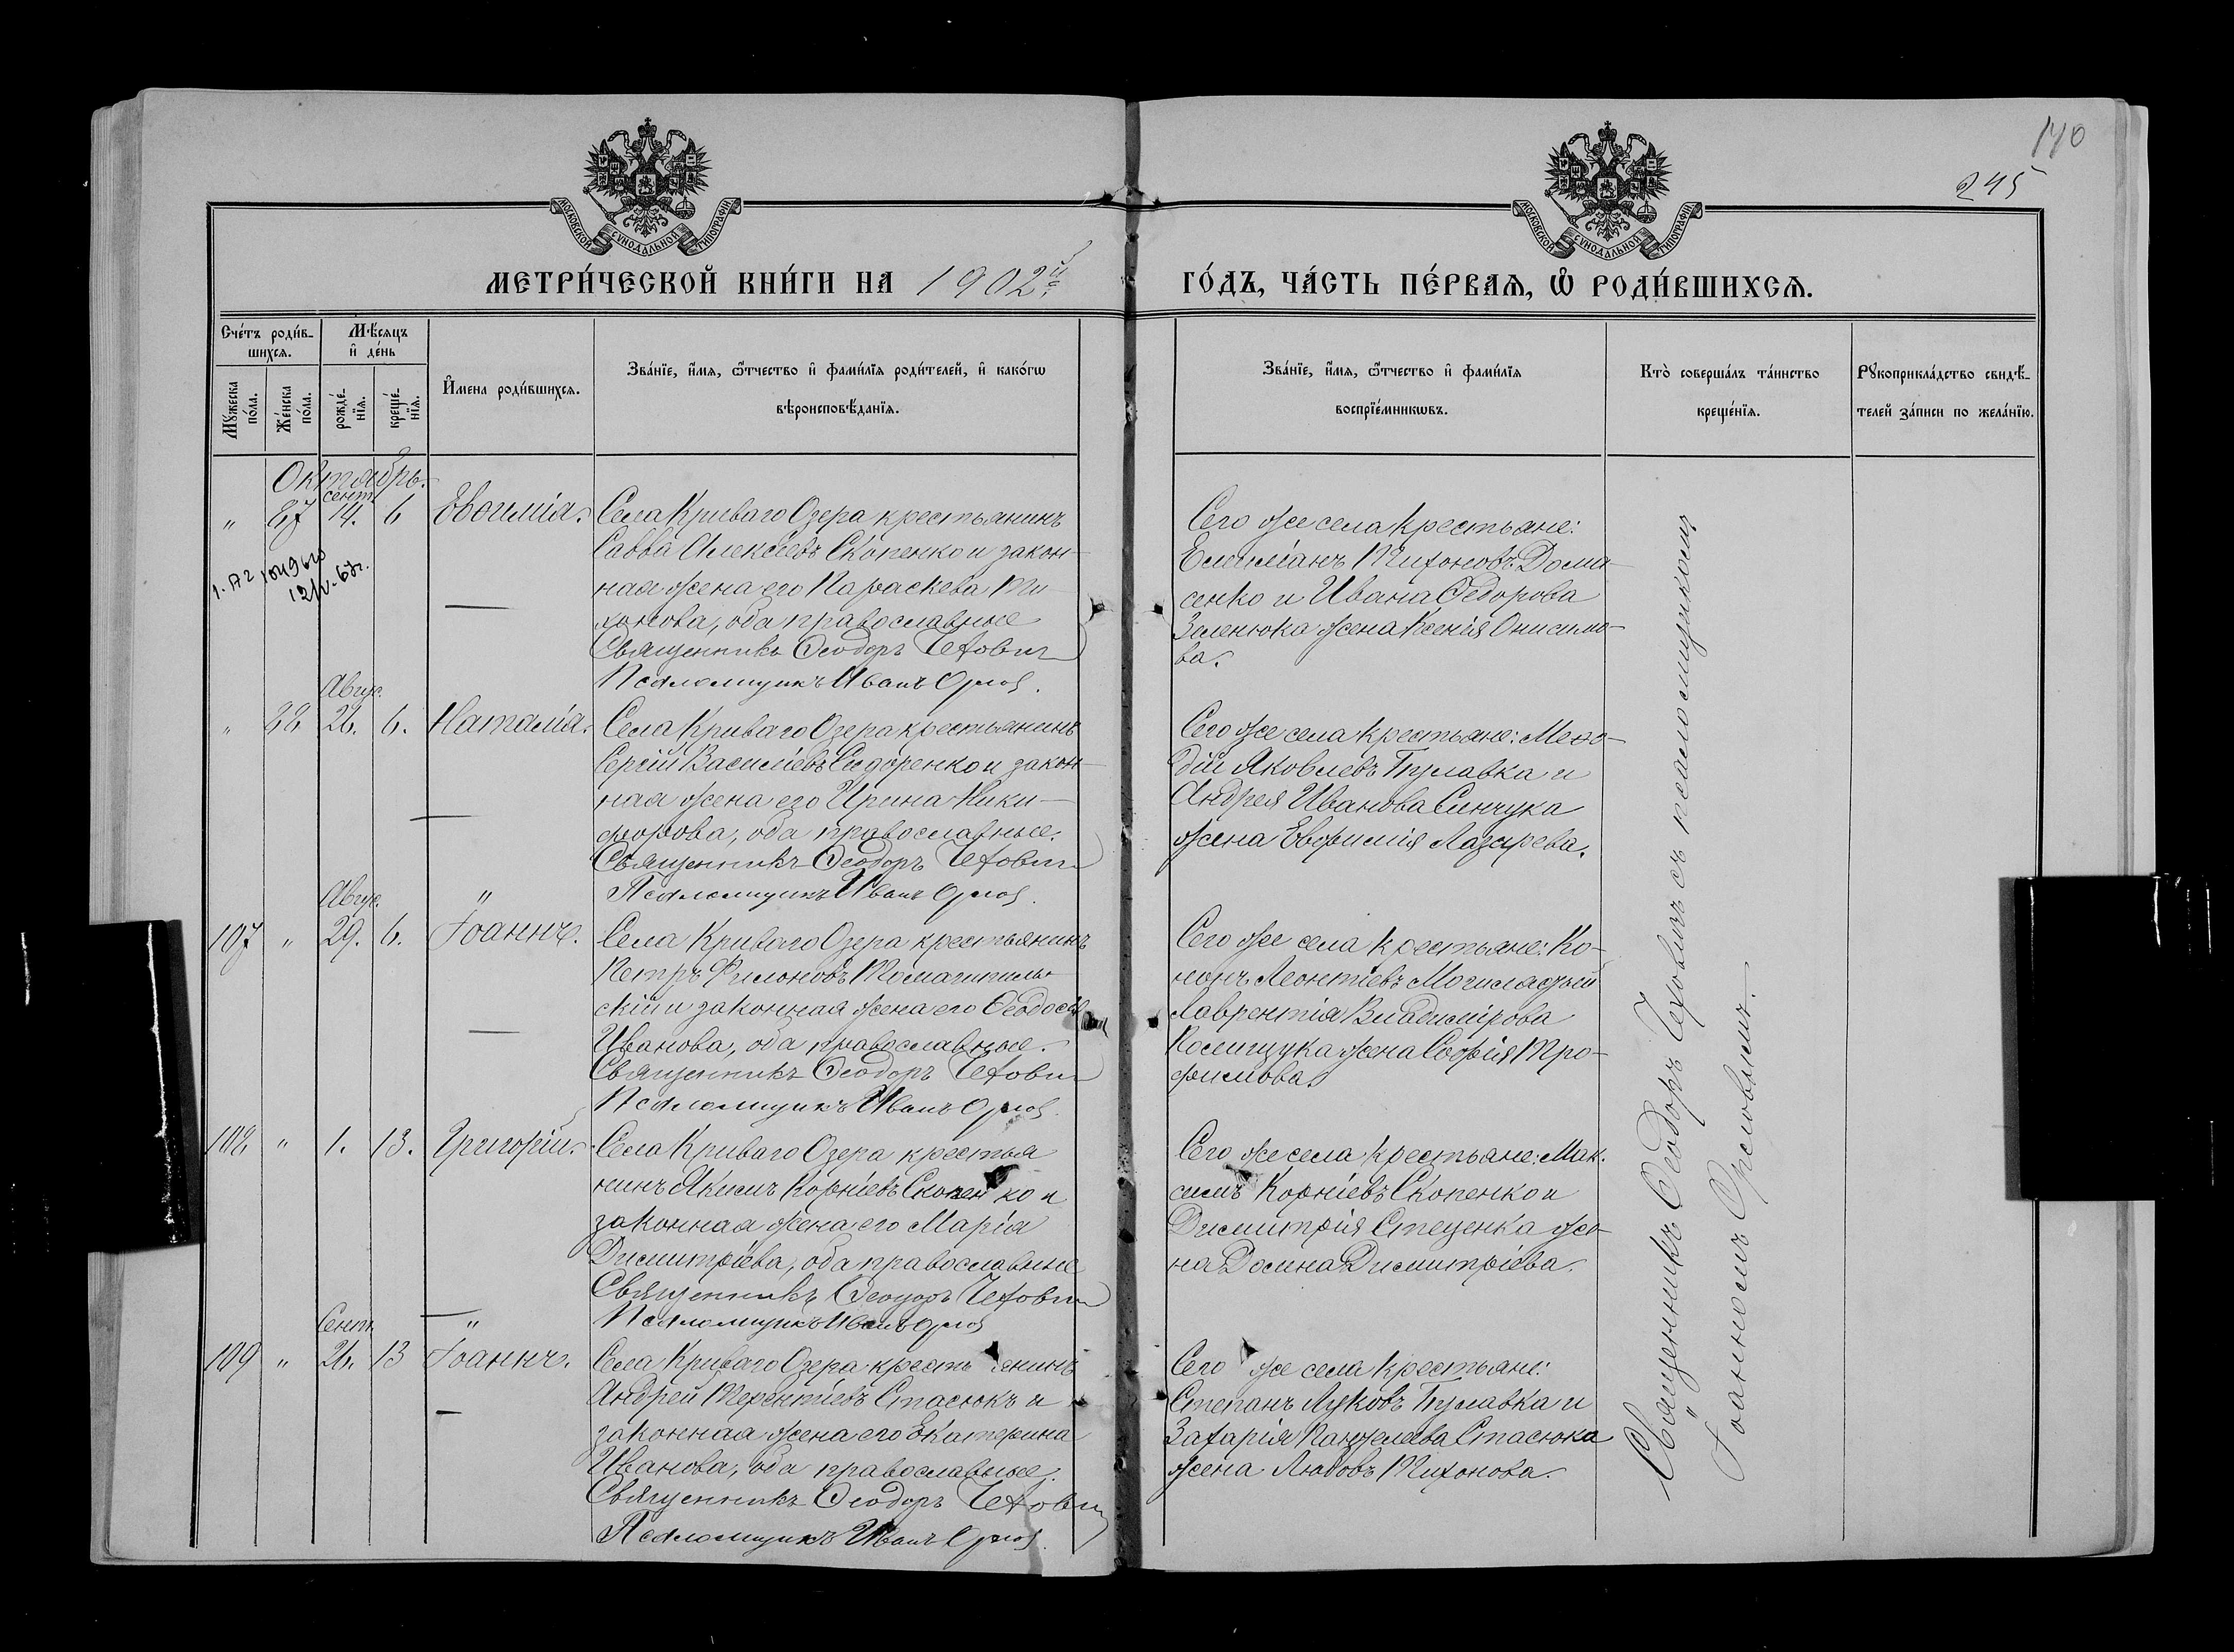 140
245
МОСКОВСКОЙ СУНОДАЛЬНОЙ ТИПОГРАФІИ
МОСКОВСКОЙ СУНОДАЛЬНОЙ ТИПОГРАФІИ
МЕТРИ́ЧЕСКОЙ КНИ́ГИ НА 1902й
ГО́ДЪ, ЧА́СТЬ ПЕ́РВАѦ, Ѡ҆ РОДИ́ВШИХСѦ.
Сче́тъ роди́в-
шихсѧ.
Мѣ́сѧцъ
и҆ де́нь
Мꙋ́жеска по́ла.
Же́нска по́ла.
рожде́-
нїѧ.
креще́-
нїѧ.
И҆́мена роди́вшихсѧ.
Зва́нїе, и҆́мѧ, ѻ҆́тчество и҆ фами́лїѧ роди́телей, и҆ како́гѡ
вѣроисповѣ́данїѧ.
Зва́нїе, и҆́мѧ, ѻ҆́тчество и҆ фами́лїѧ
воспрїе́мникѡвъ.
Кто̀ соверша́лъ та́инство
креще́нїѧ.
Рꙋкоприкла́дство свидѣ́-
телей за́писи по жела́нїю.
Октябрь.
сент.
" 87 14. 6 Евѳимія. Села Криваго Озера крестьянинъ
Савва Алексѣевъ Скопенко и закон-
ная жена его Параскева Ти-
хонова, оба православные
Священникъ Ѳеодоръ Чехович
Псаломщикъ Иванъ Орлов.
Сего же села крестьяне:
Емиліанъ Тихоновъ Дома-
сенко и Ивана Ѳедорова
Зеленюка жена Ксенія Онисимо-
ва.
Авгус.
" 88 26. 6. Наталія. Села Криваго Озера крестьянинъ
Сергій Василіевъ Сидоренко и закон-
ная жена его Ирина Ники-
форова, оба православные.
Священникъ Ѳеодоръ Чехович
Псаломщикъ Иванъ Орлов.
Сего же села крестьяне: Меѳо-
дій Яковлевъ Булавка и
Андрея Иванова Синчука
жена Евфимія Лазарева.
Авгус.
107 " 29. 6. Іоаннъ. Села Криваго Озера крестьянинъ
Петръ Филоновъ
скій и законная жена его Ѳеодосія
Иванова, оба православные.
Священникъ Ѳеодоръ Чехович
Псаломщикъ Иванъ Орлов.
Сего же села крестьяне: Ко-
нонъ Леонтіевъ
Лаврентія Владимірова
жена Софія Тро-
фимова.
108 " 1. 13. Григорій. Села Криваго Озера крестья
нинъ Якимъ Корніевъ Скопенко и
законная жена его Марія
Димитріева, оба православные
Священникъ Ѳеодоръ Чехович
Псаломщикъ Иванъ Орлов
Сего же села крестьяне: Мак-
симъ Корніевъ Скопенко и
Димитрія Стеценка же-
на Домна Димитріева.
Сент.
109 " 26. 13 Іоаннъ. Села Криваго Озера крестьянинъ
Андрей Терентіевъ Стасюкъ и
законная жена его Екатерина
Иванова, оба православные.
Священникъ Ѳеодоръ Чехович
Псаломщикъ Иванъ Орлов.
Сего же села крестьяне:
Степанъ Луковъ Булавка и
Захарія Стасюка
жена Любовь Тихонова.
Священникъ Ѳеодоръ Чеховичъ съ псаломщикомъ
Іоанномъ Орловымъ.